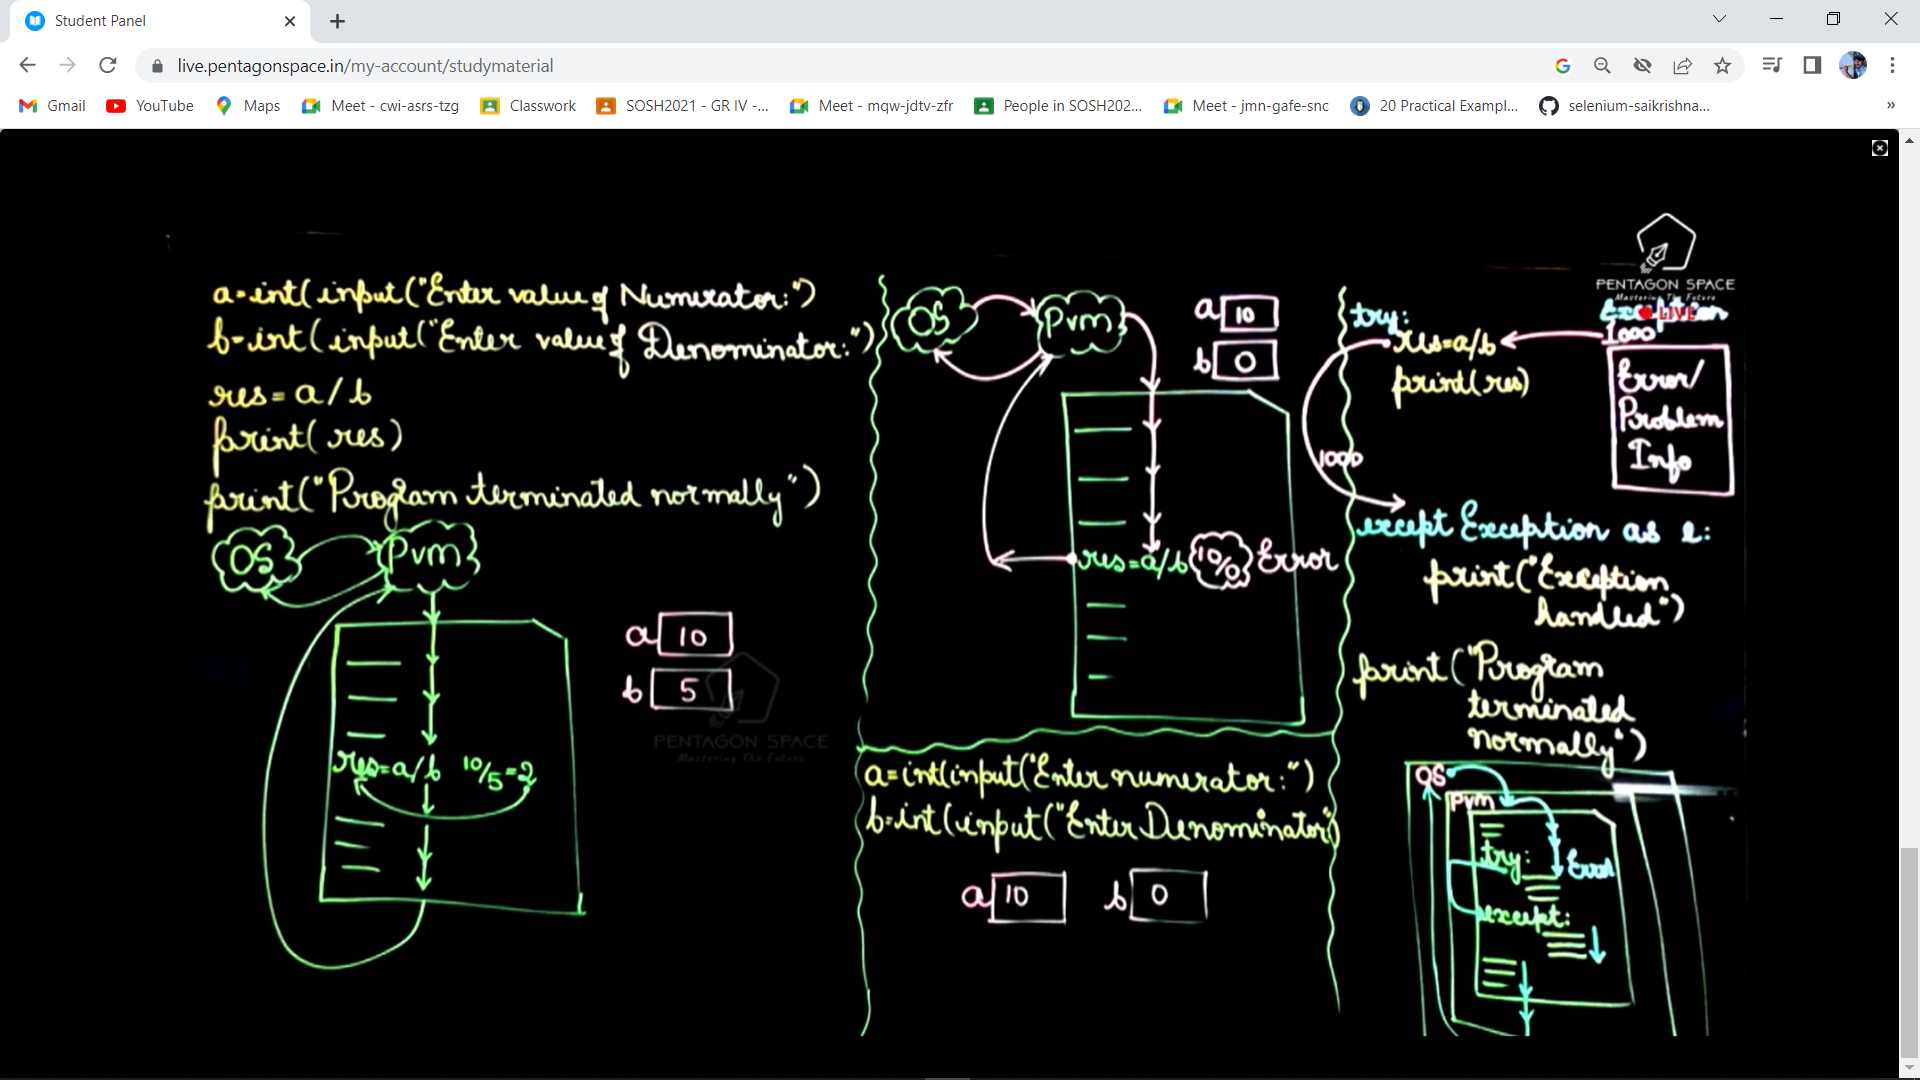 Student Panel
live.pentagonspace.in/my-account/studymaterial
Gmail
YouTube
Maps
Meet - cwi-asrs-tzg
Classwork
SOSH2021 - GR IV -...
Meet - mqw-jdtv-zfr
People in SOSH202...
Meet - jmn-gafe-snc
20 Practical Exampl...
selenium-saikrishna...
»
a=int(input("Enter value of Numerator:")
b=int(input("Enter value of Denominator:")
res= a/b
print( res)
print("Program terminated normally")
OS
Pvm
a 10
b 5
res=a/b 10/5=2
PENTAGON SPACE
Mastering The Future
OS
Pvm
a 10
b 0
res=a/b 10/0 Error
a=int(input("Enter numerator:")
b=int(input("Enter Denominator")
a 10 b 0
PENTAGON SPACE
Mastering The Future
Exception
LIVE
1000
Error/
Problem
Info
try:
res=a/b
print(res)
1000
except Exception as e:
print("Exception
handled")
print("Program
terminated
normally")
OS
Pvm
try:
Error
except: